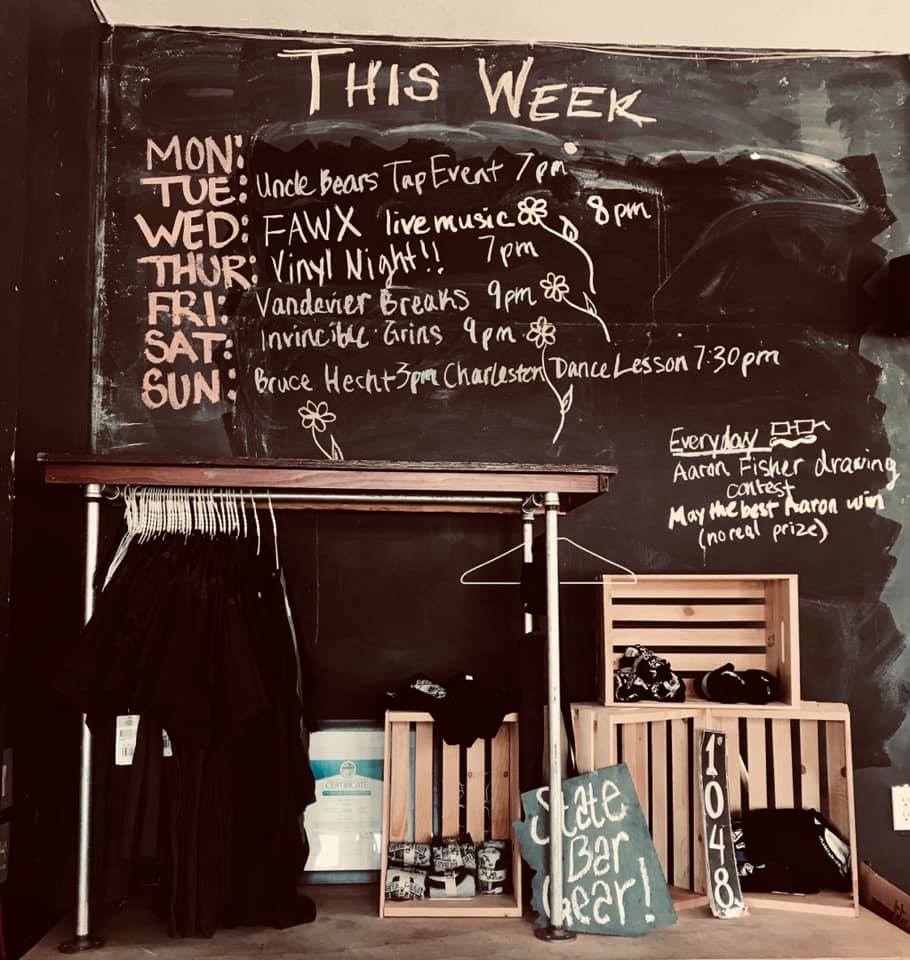 THIS WEEK
MON:
TUE: Uncle Bears Tap Event 7pm
WED: FAWX live music 8pm
THUR: Vinyl Night!! 7pm
FRI: Vandevier Breaks 9pm
SAT: Invincible Grins 9pm
SUN: Bruce Hecht 3pm Charleston Dance Lesson 7:30pm
Everyday
Aaron Fisher drawing
contest
May the best Aaron win
(no real prize)
CERTIFICATE
State
Bar
Gear!
1048